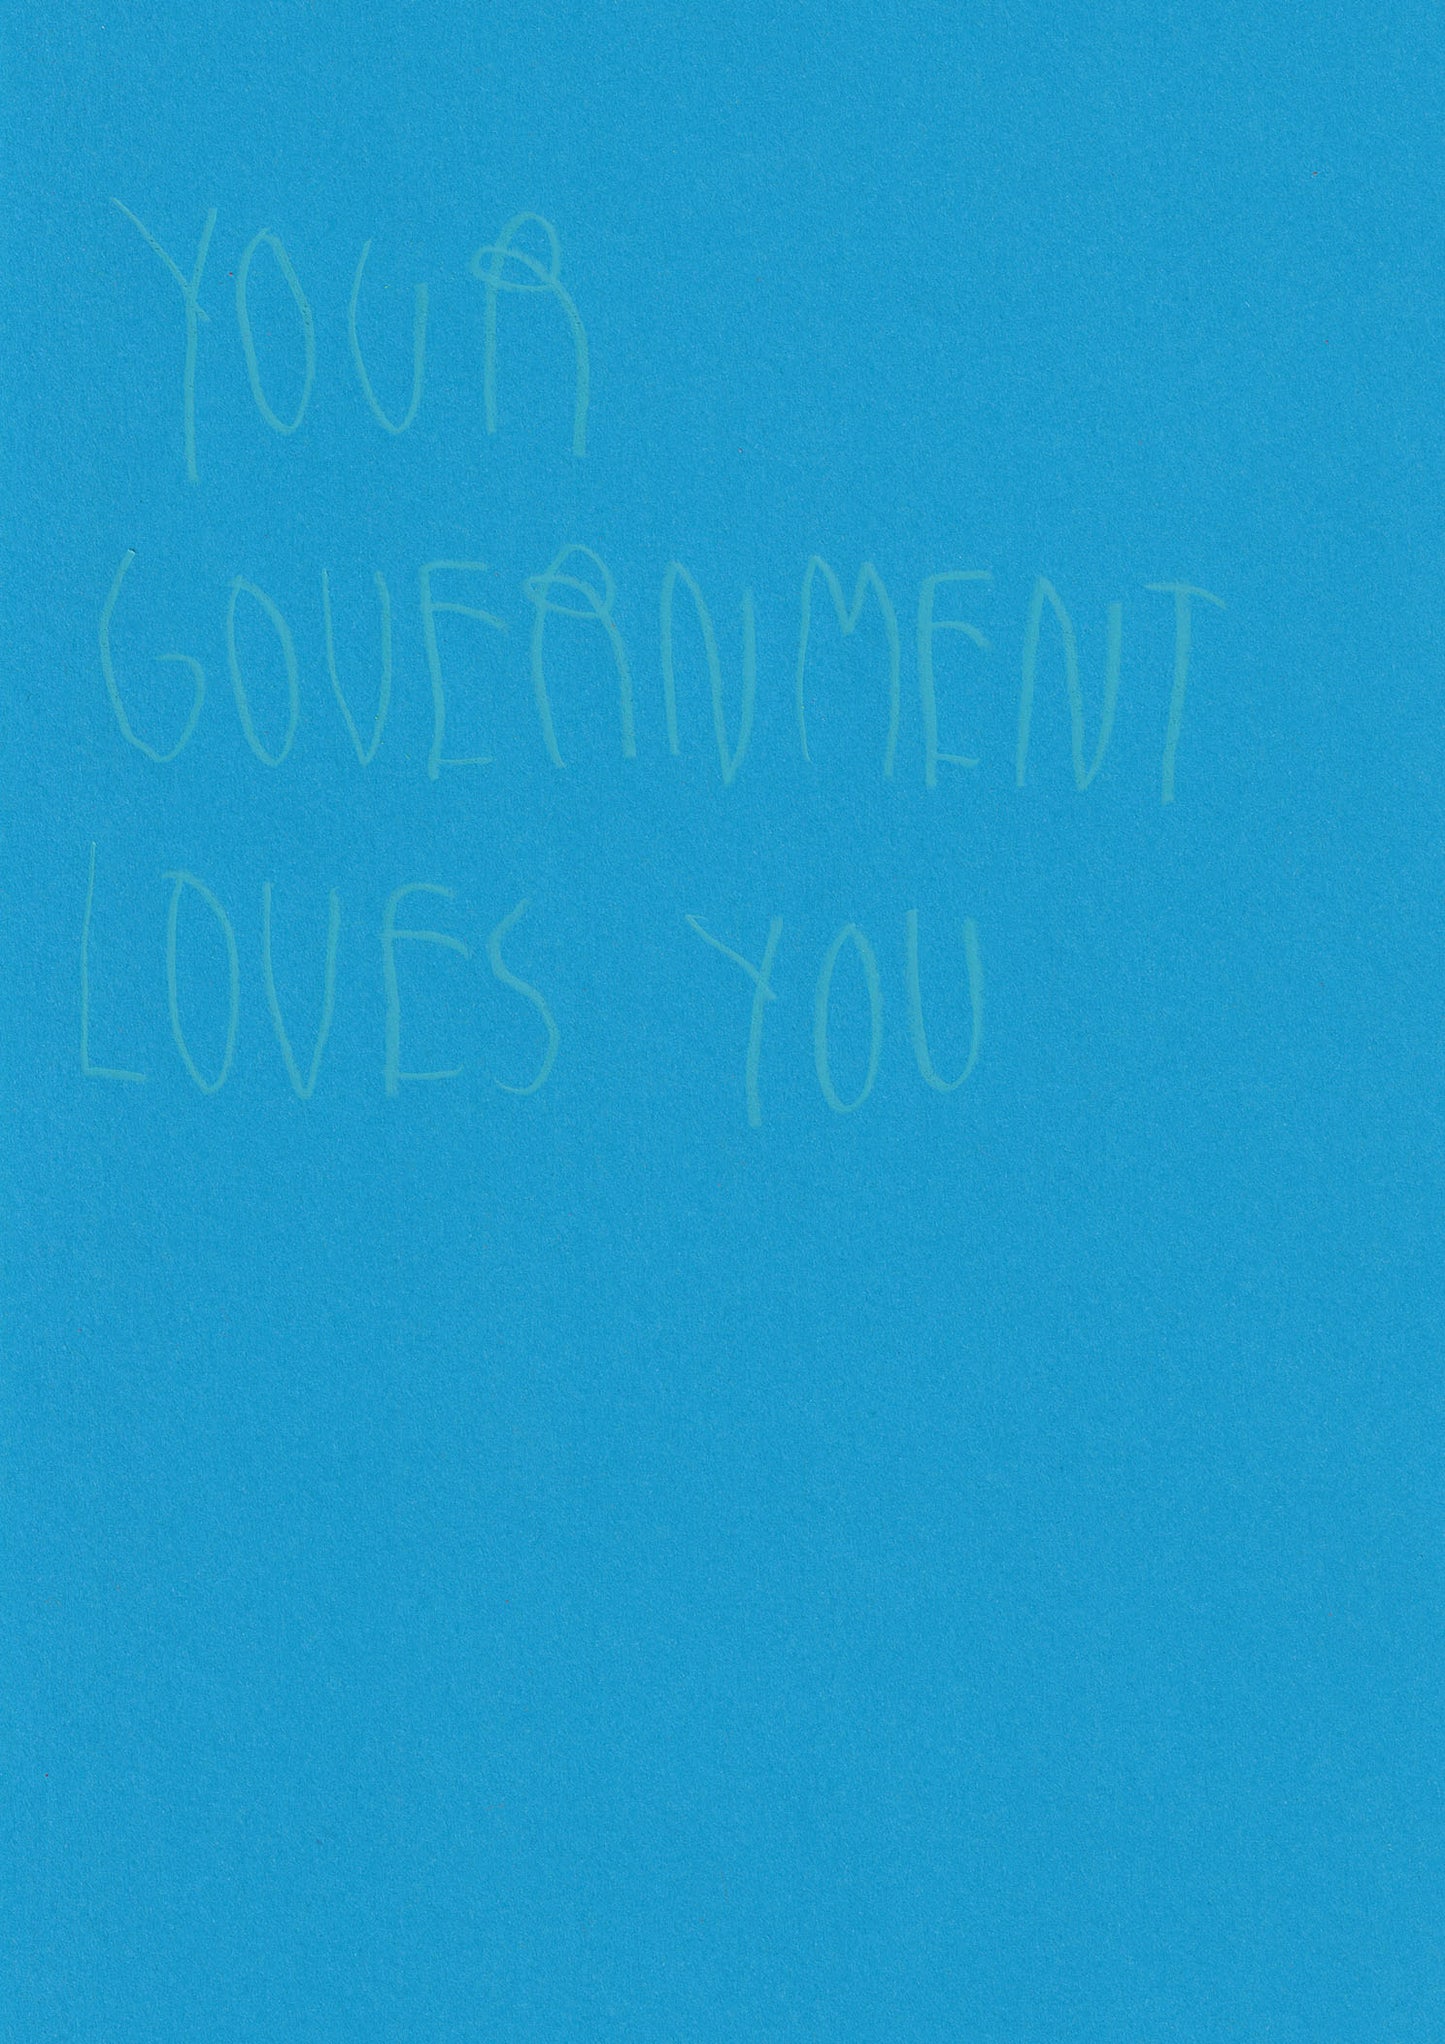 YOUR
GOVERNMENT
LOVES YOU